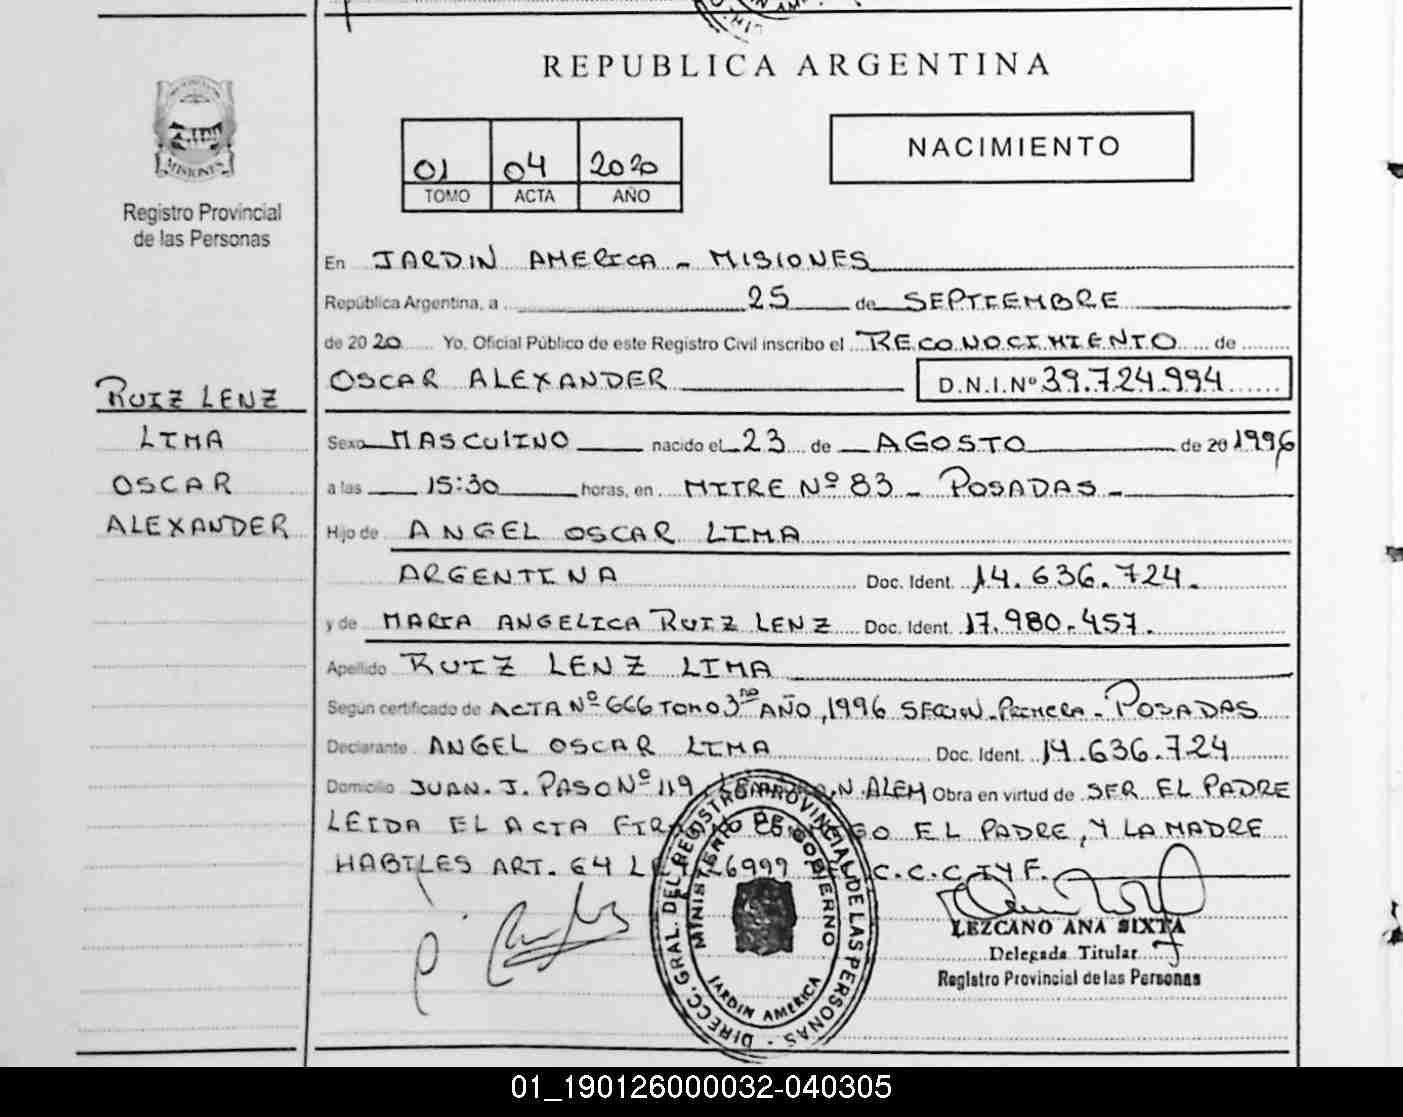 REPUBLICA ARGENTINA
01 04 2020
TOMO ACTA AÑO
NACIMIENTO
MISIONES
Registro Provincial
de las Personas
RUIZ LENZ
LIMA
OSCAR
ALEXANDER
En JARDIN AMERICA - MISIONES
República Argentina, a 25 de SEPTIEMBRE
de 2020 Yo, Oficial Público de este Registro Civil inscribo el RECONOCIMIENTO de
OSCAR ALEXANDER D.N.I.Nº 39.724.994
Sexo MASCULINO nacido el 23 de AGOSTO de 20 1996
a las 15:30 horas, en MITRE Nº 83 - POSADAS -
Hijo de ANGEL OSCAR LIMA
ARGENTINA Doc. Ident. 14.636.724.
y de MARIA ANGELICA RUIZ LENZ Doc. Ident. 17.980.457.
Apellido RUIZ LENZ LIMA
Según certificado de ACTA Nº 666 TOMO 3ro AÑO, 1996 SECCION-PRIMERA-POSADAS
Declarante ANGEL OSCAR LIMA Doc. Ident. 14.636.724
Domicilio JUAN. J. PASO Nº 119, N. ALEM Obra en virtud de SER EL PADRE
LEIDA EL ACTA EL PADRE, Y LA MADRE
HABILES ART. 64 26999 C.C.CIYF.
DIRECC. GRAL. DEL REGISTRO PROVINCIAL DE LAS PERSONAS
MINISTERIO DE GOBIERNO
JARDIN AMERICA
LEZCANO ANA SIXTA
Delegada Titular
Registro Provincial de las Personas
01_190126000032-040305